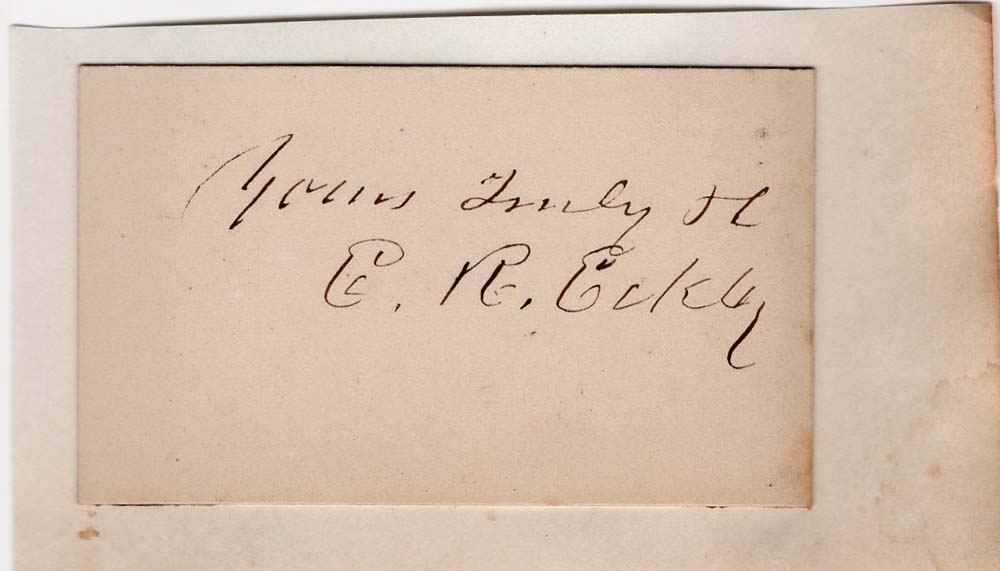 Yours Truly &c
E. R. Eckley